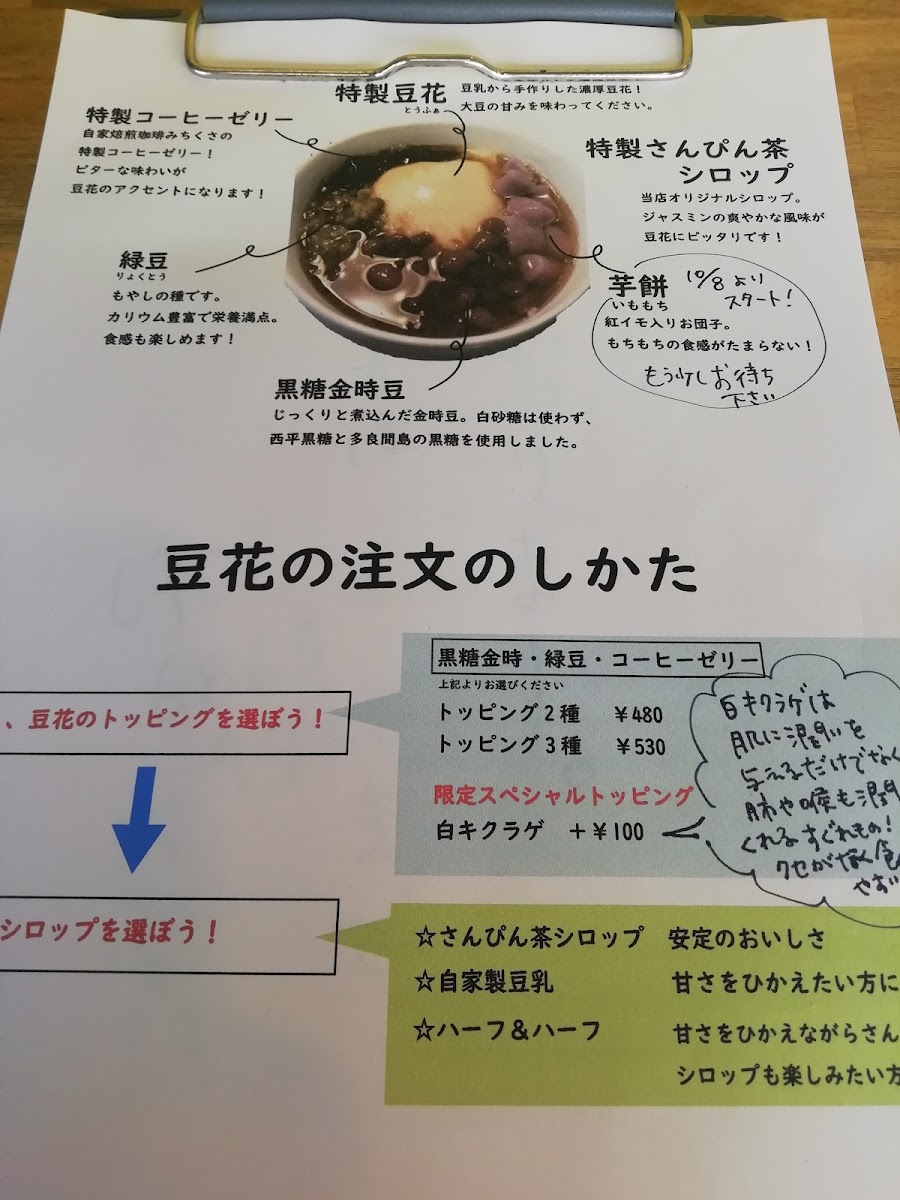 特製豆花
とうふぁ
豆乳から手作りした濃厚豆花！
大豆の甘みを味わってください。
特製コーヒーゼリー
自家焙煎珈琲みちくさの
特製コーヒーゼリー！
ビターな味わいが
豆花のアクセントになります！
特製さんぴん茶
シロップ
当店オリジナルシロップ。
ジャスミンの爽やかな風味が
豆花にピッタリです！
緑豆
りょくとう
もやしの種です。
カリウム豊富で栄養満点。
食感も楽しめます！
芋餅
いももち
10/8より
スタート！
紅イモ入りお団子。
もちもちの食感がたまらない！
もう少しお待ち
下さい
黒糖金時豆
じっくりと煮込んだ金時豆。白砂糖は使わず、
西平黒糖と多良間島の黒糖を使用しました。
豆花の注文のしかた
、豆花のトッピングを選ぼう！
黒糖金時・緑豆・コーヒーゼリー
上記よりお選びください
トッピング２種 ￥480
トッピング３種 ￥530
限定スペシャルトッピング
白キクラゲ ＋￥100
白キクラゲは
肌に潤いを
与えるだけでなく
肺や喉も潤
くれるすぐれもの！
クセが無く食
やすい
シロップを選ぼう！
☆さんぴん茶シロップ 安定のおいしさ
☆自家製豆乳 甘さをひかえたい方に
☆ハーフ＆ハーフ 甘さをひかえながらさん
シロップも楽しみたい方